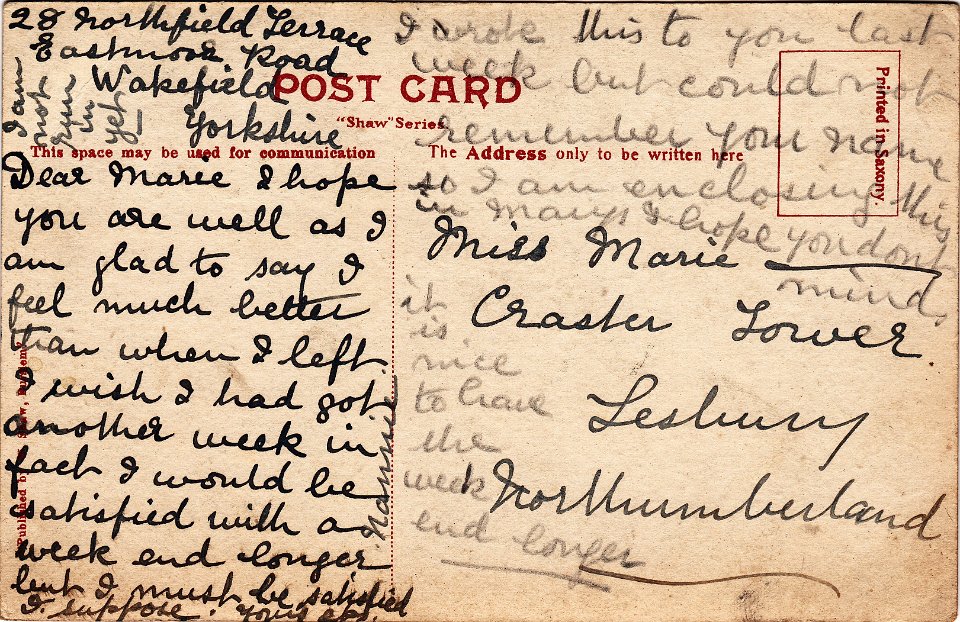 28 Northfield Terrace
Eastmoor Road
Wakefield
Yorkshire
I am
not
in
yet
POST CARD
"Shaw" Series.
This space may be used for communication
The Address only to be written here
Printed in Saxony.
Dear Marie I hope
you are well as I
am glad to say I
feel much better
than when I left.
I wish I had got
another week in
fact I would be
satisfied with a
week end longer
but I must be satisfied
I suppose. Yours
Nannie
I wrote this to you last
week but could not
remember your name
so I am enclosing this
in Marys I hope you dont
mind.
Miss Marie
Craster Tower
Lesbury
Northumberland
it
is
nice
to have
the
week
end longer
Published by Shaw,